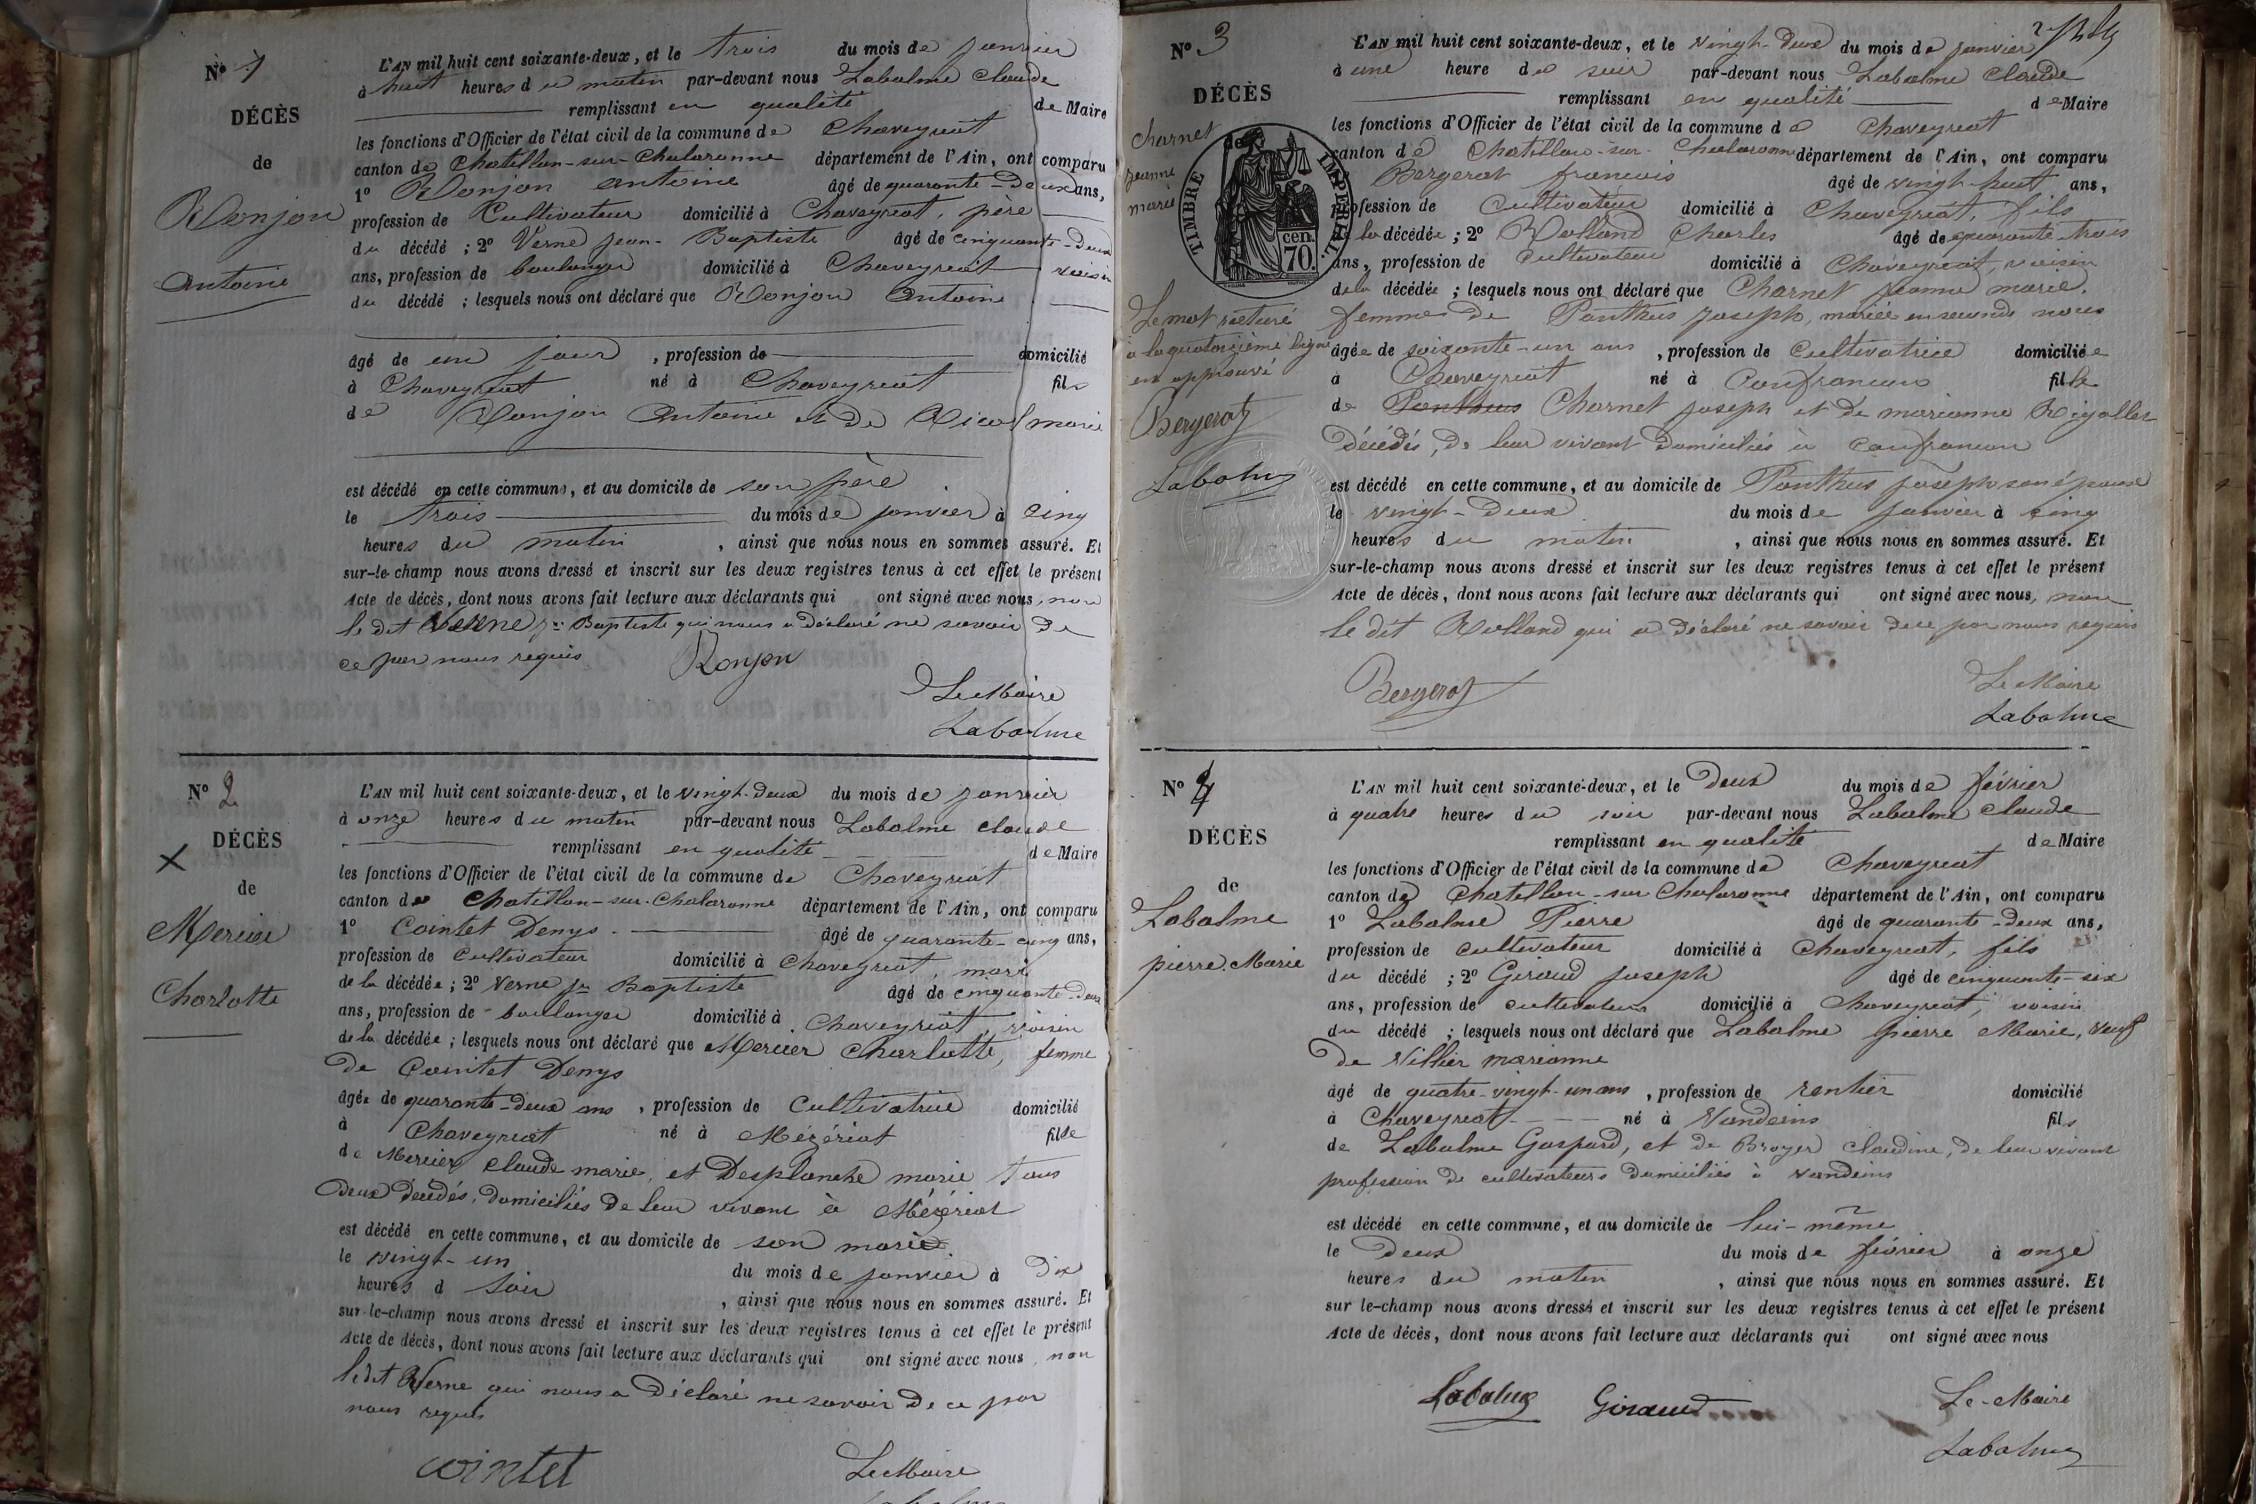 N° 1
DÉCÈS
de
Ronjon
Antoine
L'AN mil huit cent soixante-deux, et le trois du mois de janvier
à huit heures du matin par-devant nous Labalme Claude
remplissant en qualité de Maire
les fonctions d'Officier de l'état civil de la commune de Chaveyriat
canton de Chatillon-sur-Chalaronne département de l'Ain, ont comparu
1° Ronjon antoine âgé de quarante-deux ans,
profession de Cultivateur domicilié à Chaveyriat, père
du décédé ; 2° Verne Jean-Baptiste âgé de cinquante-deux
ans, profession de boulanger domicilié à Chaveyriat voisin
du décédé ; lesquels nous ont déclaré que Ronjon Antoine
âgé de un jour, profession de domicilié
à Chaveyriat né à Chaveyriat fils
de Ronjon Antoine et de Nicol marie
est décédé en cette commune, et au domicile de son père
le trois du mois de janvier à cinq
heures du matin, ainsi que nous nous en sommes assuré. Et
sur-le-champ nous avons dressé et inscrit sur les deux registres tenus à cet effet le présent
Acte de décès, dont nous avons fait lecture aux déclarants qui ont signé avec nous, non
le dit Verne Jn Baptiste qui nous a déclaré ne savoir de
ce par nous requis Ronjon
Le Maire
Labalme
N° 2
DÉCÈS
de
Mercier
Charlotte
L'AN mil huit cent soixante-deux, et le vingt-deux du mois de janvier
à onze heures du matin par-devant nous Labalme Claude
remplissant en qualité de Maire
les fonctions d'Officier de l'état civil de la commune de Chaveyriat
canton de Chatillon-sur-Chalaronne département de l'Ain, ont comparu
1° Cointet Denys âgé de quarante-cinq ans,
profession de Cultivateur domicilié à Chaveyriat, mari
de la décédée ; 2° Verne Jn Baptiste âgé de cinquante-deux
ans, profession de boulanger domicilié à Chaveyriat, voisin
de la décédée ; lesquels nous ont déclaré que Mercier Charlotte, femme
de Cointet Denys
âgée de quarante-deux ans, profession de Cultivatrice domicilié
à Chaveyriat né à Mézériat fille
de Mercier Claude marie, et Desplanche marie tous
deux décédés, domiciliés de leur vivant à Mézériat
est décédé en cette commune, et au domicile de son marie
le vingt-un du mois de janvier à dix
heures d soir, ainsi que nous nous en sommes assuré. Et
sur-le-champ nous avons dressé et inscrit sur les deux registres tenus à cet effet le présent
Acte de décès, dont nous avons fait lecture aux déclarants qui ont signé avec nous, non
le dit Verne qui nous a déclaré ne savoir de ce par
nous requis
cointet Le Maire
N° 3
DÉCÈS
charnet
jeanne
marie
TIMBRE IMPÉRIAL
70 cen.
Le mot raturé
à la quatorzième ligne
est approuvé
Bergerot
Labalme
L'AN mil huit cent soixante-deux, et le vingt-deux du mois de janvier
à une heure du soir par-devant nous Labalme Claude
remplissant en qualité de Maire
les fonctions d'Officier de l'état civil de la commune de Chaveyriat
canton de Chatillon-sur-Chalaronne département de l'Ain, ont comparu
Bergerot francois âgé de vingt-huit ans,
profession de Cultivateur domicilié à Chaveyriat, fils
de la décédée ; 2° Rolland Charles âgé de quarante-trois
ans, profession de Cultivateur domicilié à Chaveyriat, voisin
de la décédée ; lesquels nous ont déclaré que Charnet jeanne marie,
femme de Ponthus joseph, mariée en seconde noces
âgée de soixante-un ans, profession de Cultivatrice domiciliée
à Chaveyriat né à Confrancon fille
de Ponthus Charnet joseph et de marianne Rigollet
décédés, de leur vivant domiciliés à confrancon
est décédé en cette commune, et au domicile de Ponthus joseph son époux
le vingt-deux du mois de janvier à cinq
heures du matin, ainsi que nous nous en sommes assuré. Et
sur-le-champ nous avons dressé et inscrit sur les deux registres tenus à cet effet le présent
Acte de décès, dont nous avons fait lecture aux déclarants qui ont signé avec nous, non
le dit Rolland qui a déclaré ne savoir de ce par nous requis
Bergerot Le Maire
Labalme
N° 4
DÉCÈS
de
Labalme
pierre Marie
L'AN mil huit cent soixante-deux, et le deux du mois de février
à quatre heures du soir par-devant nous Labalme Claude
remplissant en qualité de Maire
les fonctions d'Officier de l'état civil de la commune de Chaveyriat
canton de Chatillon-sur-Chalaronne département de l'Ain, ont comparu
1° Labalme Pierre âgé de quarante-deux ans,
profession de cultivateur domicilié à Chaveyriat, fils
du décédé ; 2° Giraud joseph âgé de cinquante-six
ans, profession de cultivateur domicilié à Chaveyriat, voisin
du décédé ; lesquels nous ont déclaré que Labalme pierre Marie, veuf
de Villier marianne
âgé de quatre-vingt-un ans, profession de rentier domicilié
à Chaveyriat né à Vandeins fils
de Labalme Gaspard, et de Broyer claudine, de leur vivant
profession de cultivateurs domiciliés à vandeins
est décédé en cette commune, et au domicile de lui-même
le deux du mois de février à onze
heures du matin, ainsi que nous nous en sommes assuré. Et
sur le-champ nous avons dressé et inscrit sur les deux registres tenus à cet effet le présent
Acte de décès, dont nous avons fait lecture aux déclarants qui ont signé avec nous
Labalme Giraud Le Maire
Labalme